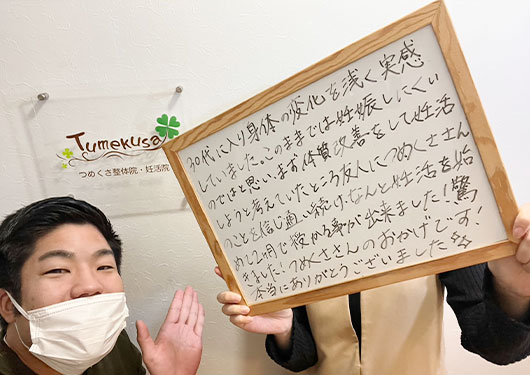 Tumekusa
つめくさ整体院・妊活院
30代に入り身体の変化を浅く実感
していました。このままでは妊娠しにくい
のではと思い、まず体質改善をして妊活
しようと考えていたところ友人につめくささん
のことを信じ通い続け、なんと妊活を始
めて2ヶ月で授かる事が出来ました！驚
きました！つめくささんのおかげです！
本当にありがとうございました